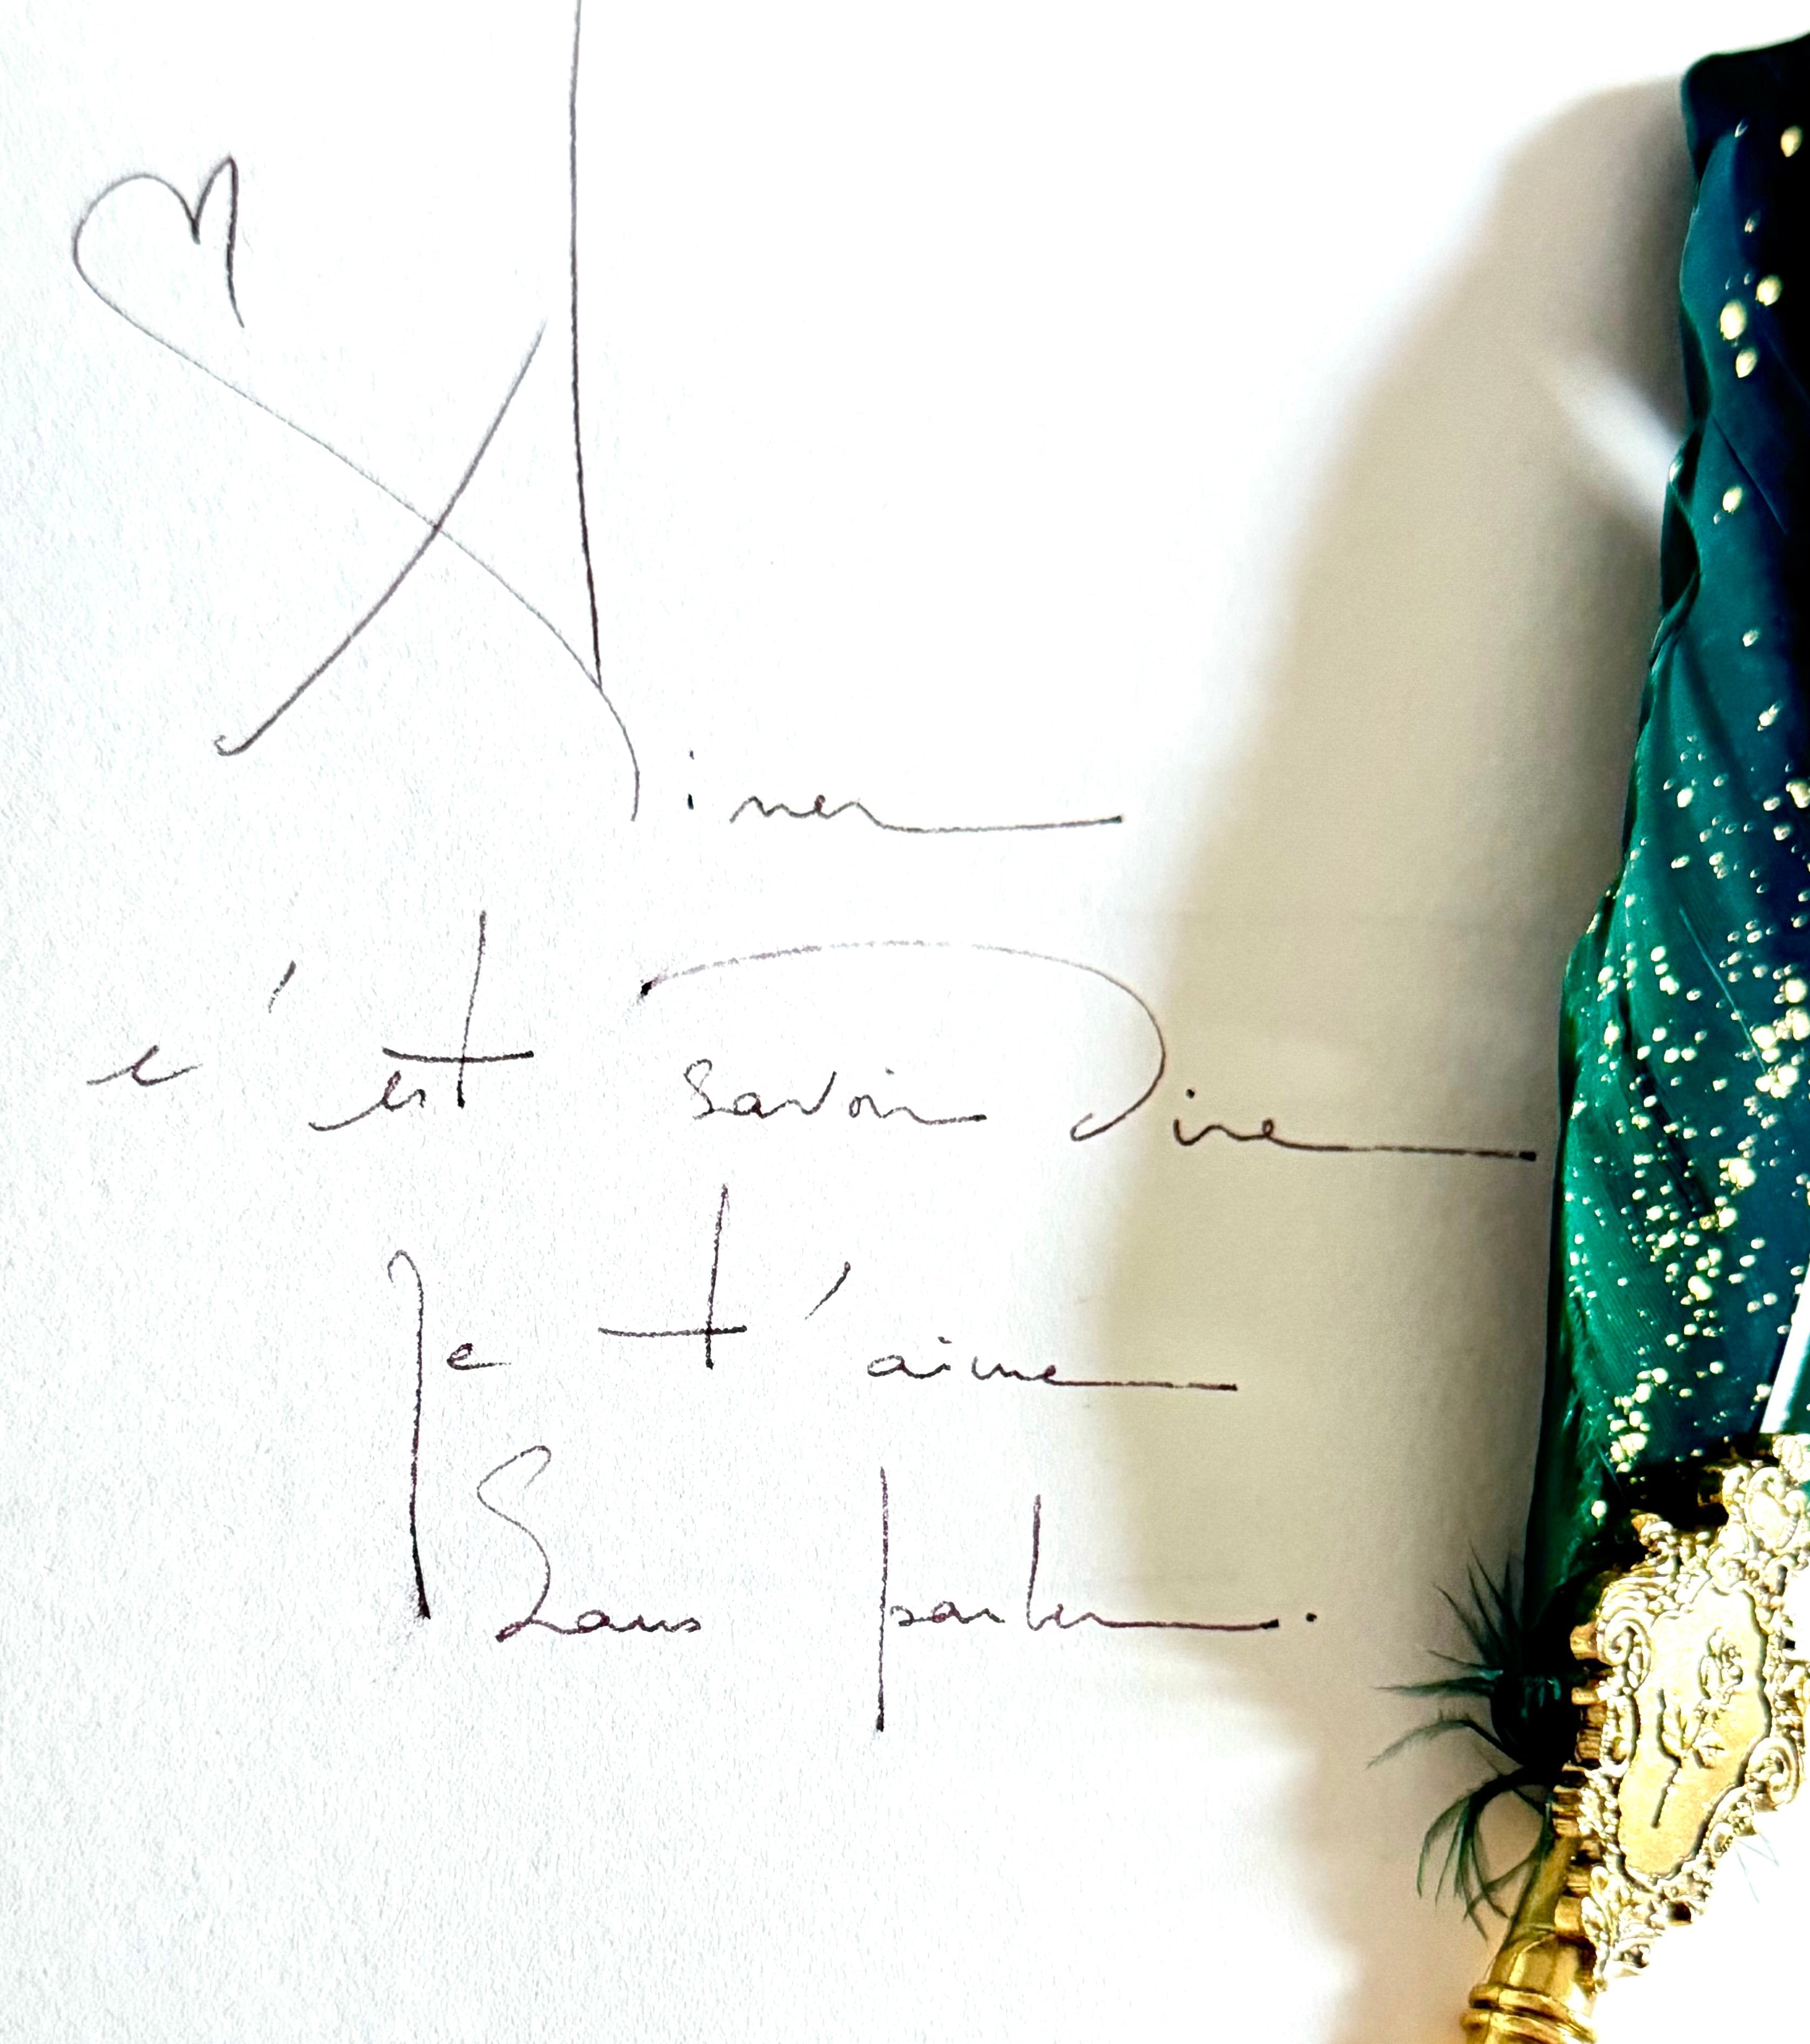 Aimer
c'est savoir Dire
Je t'aime
Sans parler.